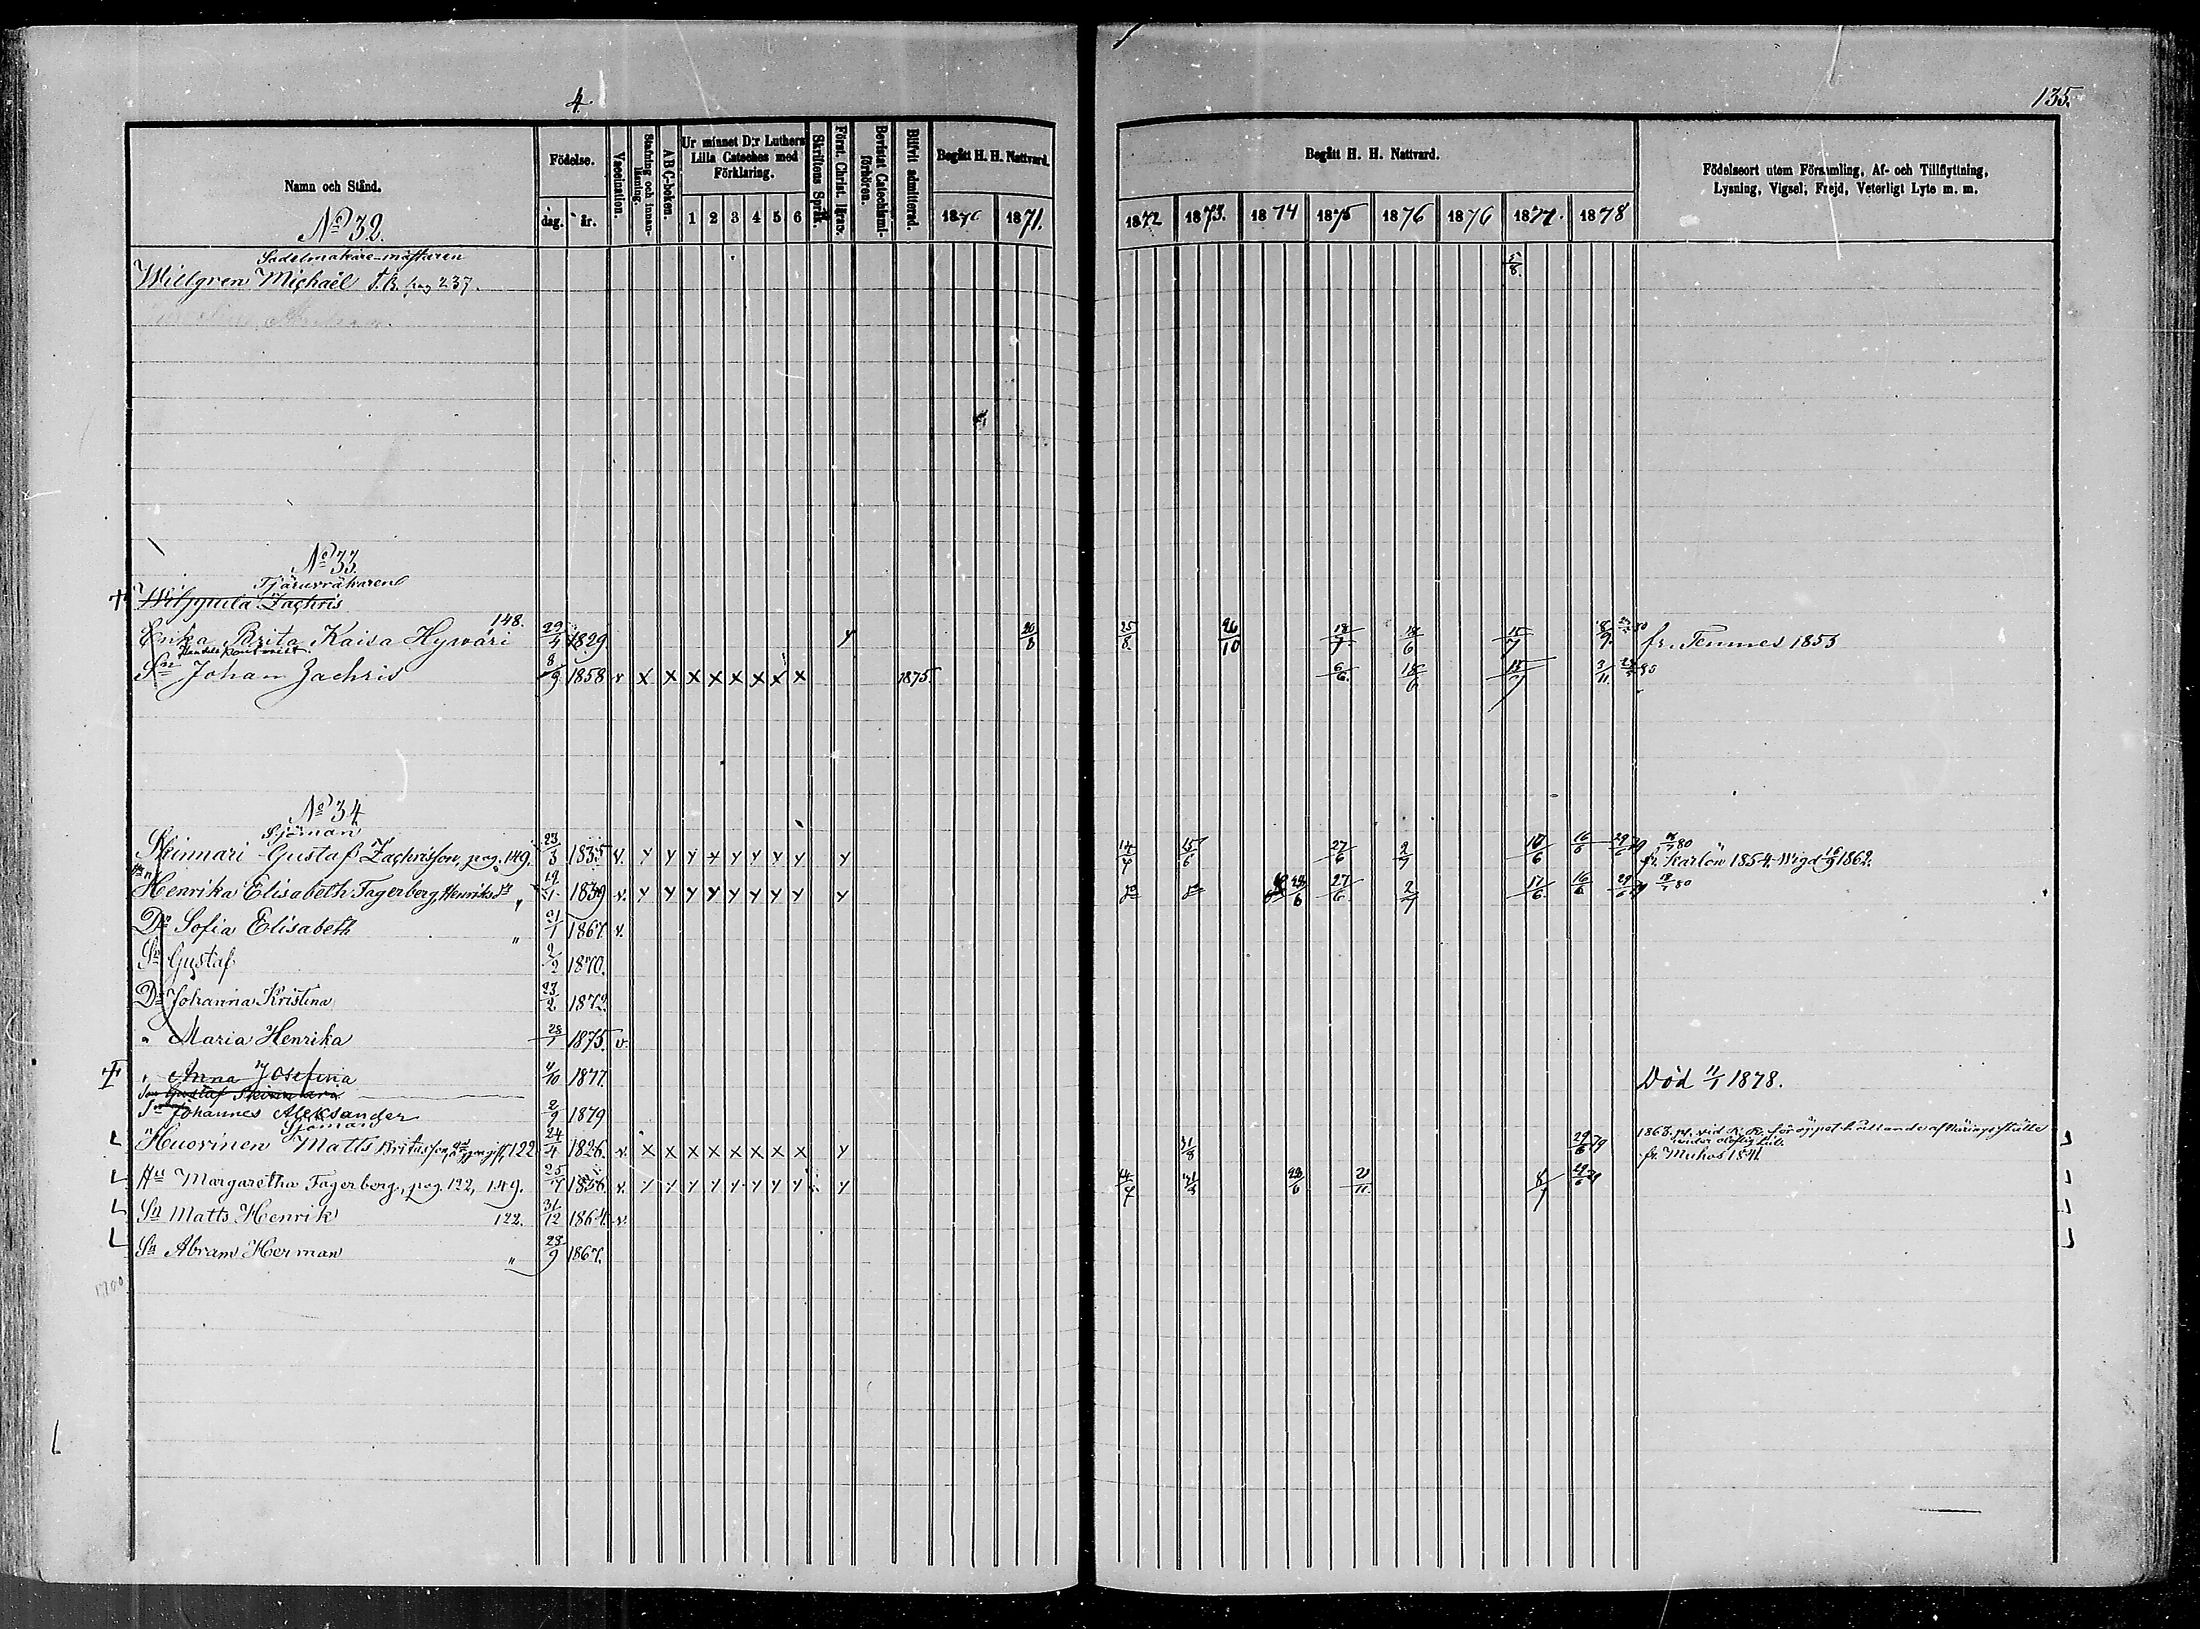 4.
135.
Namn och Stånd.
Födelse.
dag.
år.
Vaccination.
Stafning och innanläsning.
ABC-boken.
Ur minnet D:r Luthers Lilla Cateches med Förklaring.
1 2 3 4 5 6
Skriftens Språk.
Först. Christ. läran.
Bevistat Catechismi-förhören.
Blifvit admitterad.
Begått H. H. Nattvard.
1870 1871.
Begått H. H. Nattvard.
1872 1873. 1874 1875 1876 1876 1877. 1878
Födelseort utom Församling, Af- och Tillflyttning,
Lysning, Vigsel, Frejd, Veterligt Lyte m. m.
No 32.
Sadelmakare-mästaren
Willgren Michaël T.B. pag 237. 5/8.
No 33.
Tjäruvräkaren
Zachris
148.
Erika Brita Kaisa Hywäri 29/4 1829. y 20/8 25/8 26/10 18/7 18/6 15/7 8/9 fr. Temmes 1853
Sn Johan Zachris 8/9 1858 v x x x x x x x x 1875. 6/6. 18/6 15/7 3/11
No 34
Sjöman
Skinnari Gustaf Zachrisson, pag. 149. 23/3 1835 v. y y y y y y y y y 14/4 15/6 27/6 2/7 16/6 29/6 79
fr. Karlön 1854. Wigd 1862.
Hu Henrika Elisabeth Fagerberg, Henriksdr " 1839 v. y y y y y y y y y 27/6. 2/7 17/6. 16/6 29/6 79
Dr Sofia Elisabeth " 1867. v.
Sn Gustaf 2/2 1870.
Dr Johanna Kristina 23/2 1872.
" Maria Henrika 28/1 1875. v.
" Anna Josefina 11/10 1877. Död 11/1 1878.
Son Gustaf Skinnari
Sn Johannes Aleksander 2/9 1879
Sjöman
Huovinen Matts Britasson, 122 24/4 1826. v. x x x x x x x x y 29/6 79
fr. Muhos 1841.
Hu Margaretha Fagerberg, pag. 122, 149. 25/7 1836. v. y y y y y y y y y 14/4 28/6 21/11 8/7 29/6 79
Sn Matts Henrik 122. 31/12 1864. v.
Sn Abram Herman " 23/9 1867.